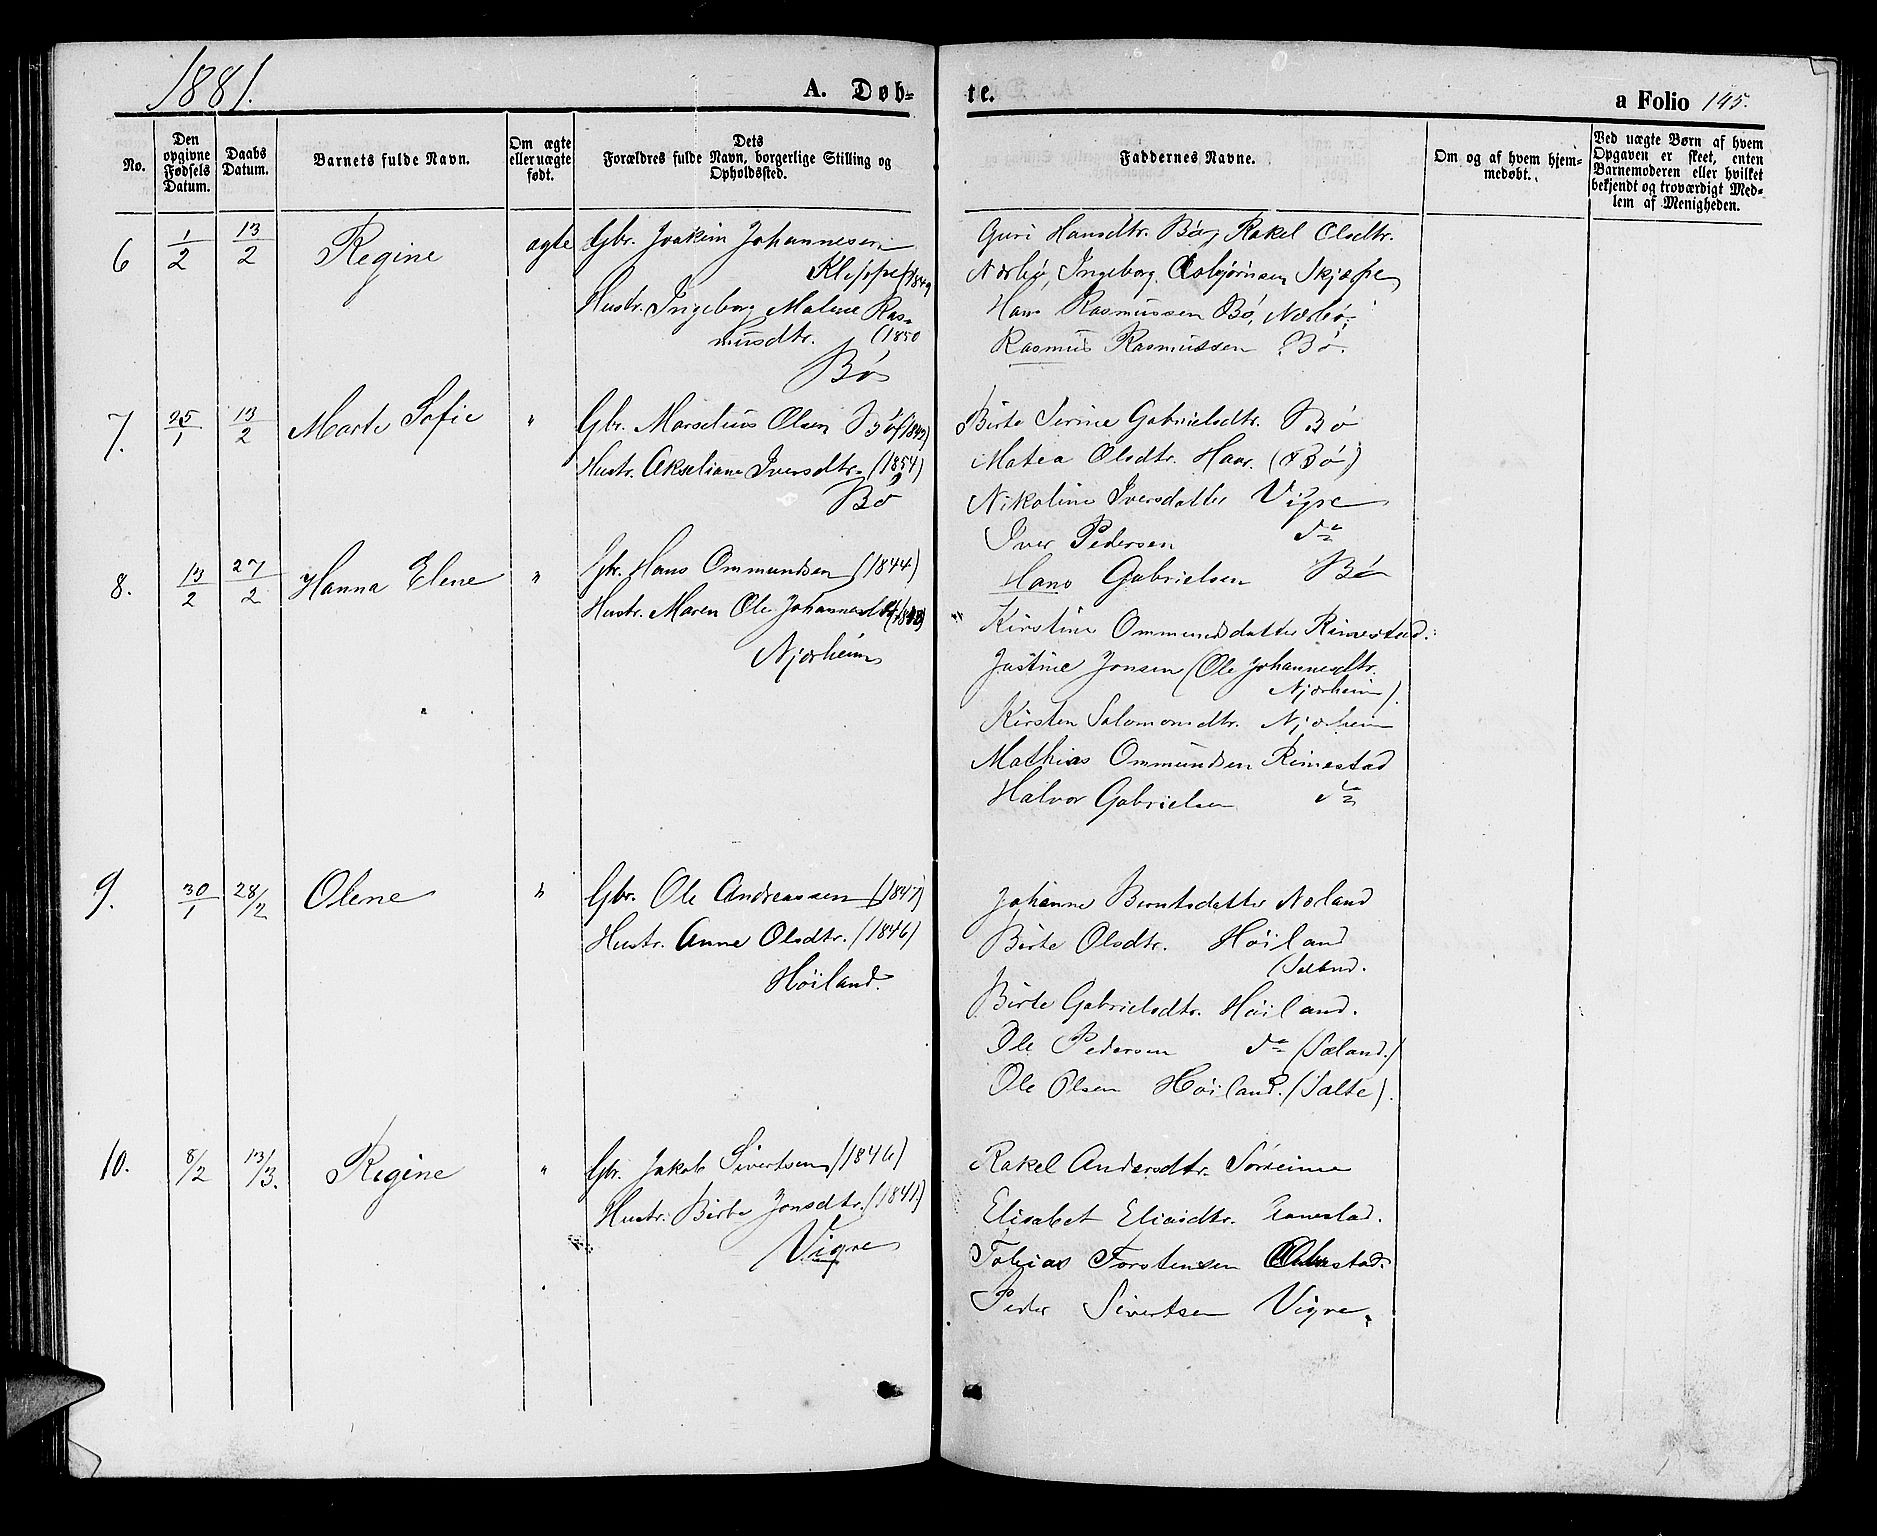 1881.
A. Døb-
te.
a Folio 145.
No.
Den opgivne Fødsels Datum.
Daabs Datum.
Barnets fulde Navn.
Om ægte eller uægte født.
Dets Forældres fulde Navn, borgerlige Stilling og Opholdssted.
Faddernes Navne.
Om og af hvem hjemmedøbt.
Ved uægte Børn af hvem Opgaven er skeet, enten Barnemoderen eller hvilket bekjendt og troværdigt Medlem af Menigheden.
6 1/2 13/2 Regine ægte Gbr. Joakim Johannesen
Kleppe (1849
Hustr. Ingeborg Malene Ras-
musdtr. (1850
Bø
Guri Hansdtr. Bø, Rakel Olsdtr.
Nærbø, Ingeborg Asbjørnsen Skjæpe
Hans Rasmussen Bø, Nærbø;
Rasmus Rasmussen Bø.
7. 25/1 13/2 Marte Sofie " Gbr. Marselius Olsen Bø (1842)
Hustr. Akseliane Iversdtr. (1854)
Bø
Birte Serine Gabrielsdtr. Bø
Matea Olsdtr. Haar. (Bø)
Nikoline Iversdatter Vigre
Iver Pedersen do
Hans Gabrielsen Bø
8. 13/2 27/2 Hanna Elene " Gbr. Hans Ommundsen (1844)
Hustr. Maren Ole Johannesdtr
Njærheim
Kirstine Ommundsdatter Rimestad.
Justine Jonsen (Ole Johannesdtr.
Njærheim)
Kirsten Salomonsdtr. Njærheim
Mathias Ommundsen Rimestad
Halvor Gabrielsen do
9. 30/1 28/2 Olene " Gbr. Ole Andreassen (1847)
Hustr. Anne Olsdtr. (1846)
Høiland.
Johanne Berntsdatter Norland
Birte Olsdtr. Høiland
(Sæland.
Birte Gabrielsdtr. Høiland.
Ole Pedersen do (Sæland.)
Ole Olsen Høiland. (Salte).
10. 8/2 13/3. Regine " Gbr. Jakob Sivertsen (1846)
Hustr. Birte Jonsdtr. (1841)
Vigre
Rakel Andersdtr. Sørheim
Elisabet Eliasdtr. Tanestad.
Tobias Torstensen
Peder Sivertsen Vigre.